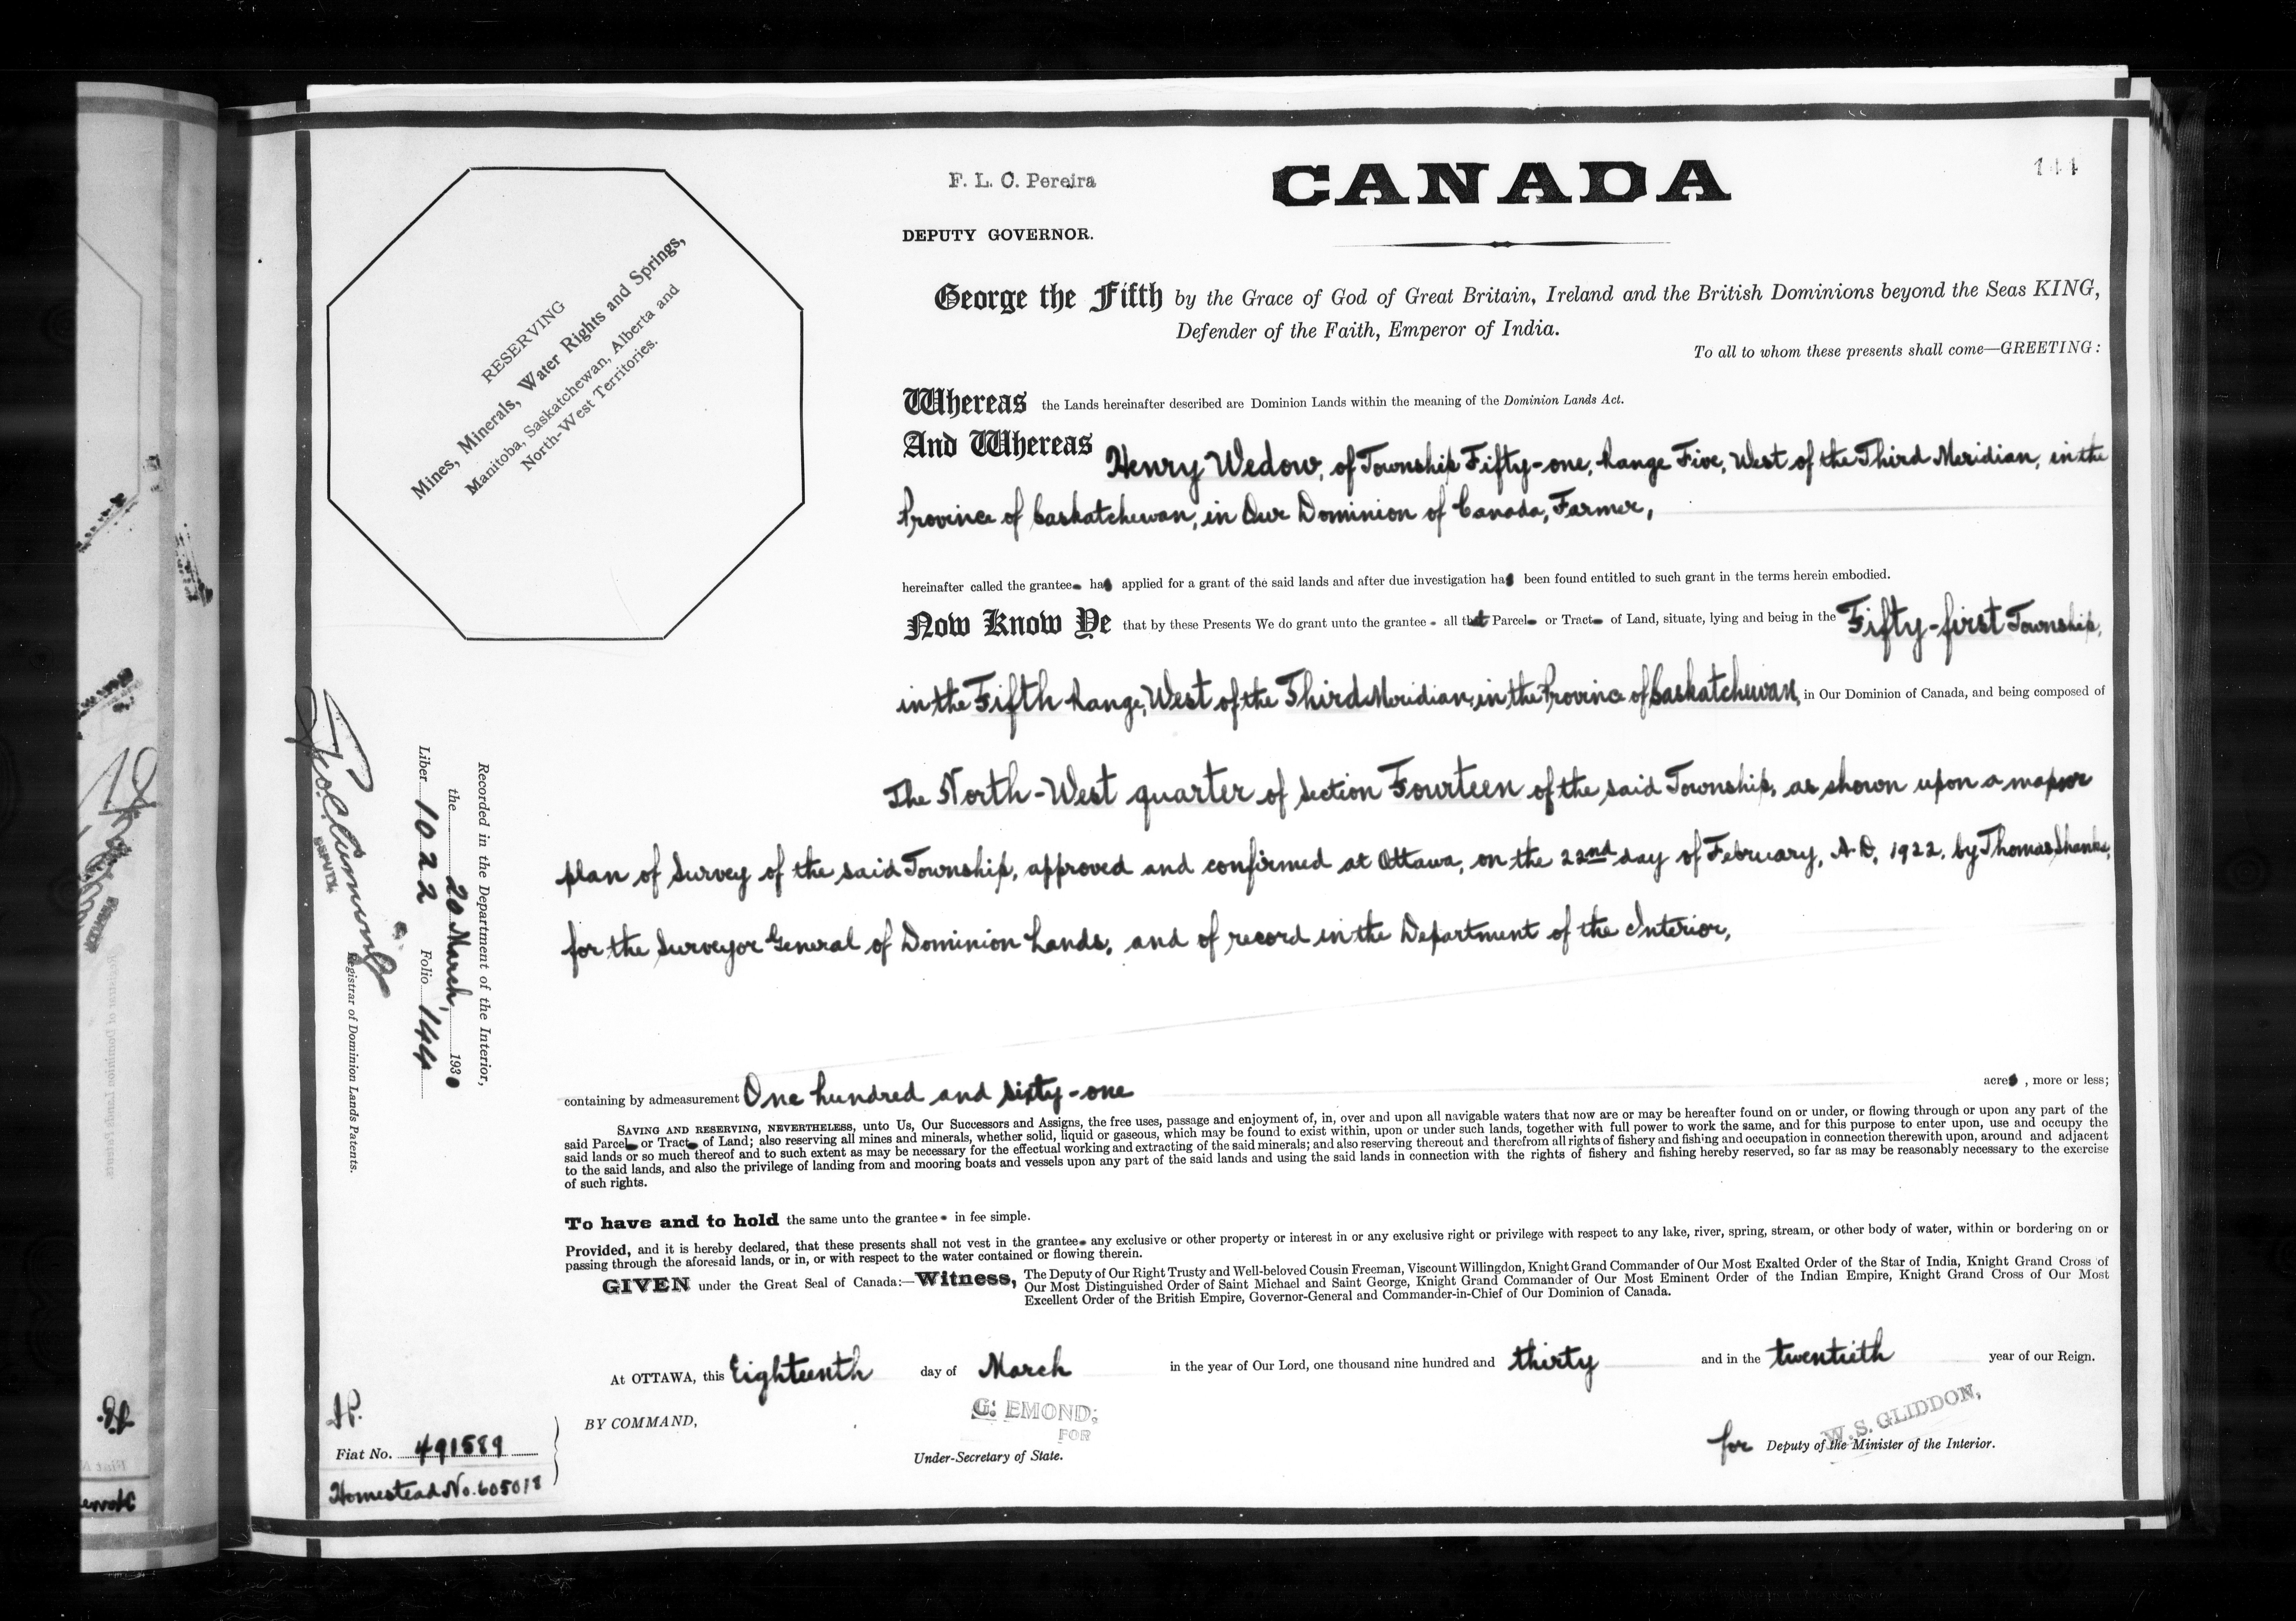 144
F. L. C. Pereira
CANADA
DEPUTY GOVERNOR.
RESERVING
Mines, Minerals, Water Rights and Springs,
Manitoba, Saskatchewan, Alberta and
North-West Territories.
George the Fifth by the Grace of God of Great Britain, Ireland and the British Dominions beyond the Seas KING,
Defender of the Faith, Emperor of India.
To all to whom these presents shall come—GREETING:
Whereas the Lands hereinafter described are Dominion Lands within the meaning of the Dominion Lands Act.
And Whereas Henry Wedow, of Township Fifty-one, Range Five, West of the Third Meridian, in the
Province of Saskatchewan, in Our Dominion of Canada, Farmer,
hereinafter called the grantee has applied for a grant of the said lands and after due investigation has been found entitled to such grant in the terms herein embodied.
Now Know Ye that by these Presents We do grant unto the grantee - all that Parcel or Tract of Land, situate, lying and being in the Fifty-first Township,
in the Fifth Range, West of the Third Meridian, in the Province of Saskatchewan, in Our Dominion of Canada, and being composed of
The North-West quarter of Section Fourteen of the said Township, as shown upon a map or
plan of Survey of the said Township, approved and confirmed at Ottawa, on the 22nd day of February, A.D. 1922. by Thomas Shanks,
for the Surveyor General of Dominion Lands, and of record in the Department of the Interior,
containing by admeasurement One hundred and sixty-one acres, more or less;
SAVING AND RESERVING, NEVERTHELESS, unto Us, Our Successors and Assigns, the free uses, passage and enjoyment of, in, over and upon all navigable waters that now are or may be hereafter found on or under, or flowing through or upon any part of the
said Parcel or Tract of Land; also reserving all mines and minerals, whether solid, liquid or gaseous, which may be found to exist within, upon or under such lands, together with full power to work the same, and for this purpose to enter upon, use and occupy the
said lands or so much thereof and to such extent as may be necessary for the effectual working and extracting of the said minerals; and also reserving thereout and therefrom all rights of fishery and fishing and occupation in connection therewith upon, around and adjacent
to the said lands, and also the privilege of landing from and mooring boats and vessels upon any part of the said lands and using the said lands in connection with the rights of fishery and fishing hereby reserved, so far as may be reasonably necessary to the exercise
of such rights.
To have and to hold the same unto the grantee in fee simple.
Provided, and it is hereby declared, that these presents shall not vest in the grantee any exclusive or other property or interest in or any exclusive right or privilege with respect to any lake, river, spring, stream, or other body of water, within or bordering on or
passing through the aforesaid lands, or in, or with respect to the water contained or flowing therein.
GIVEN under the Great Seal of Canada:—Witness, The Deputy of Our Right Trusty and Well-beloved Cousin Freeman, Viscount Willingdon, Knight Grand Commander of Our Most Exalted Order of the Star of India, Knight Grand Cross of
Our Most Distinguished Order of Saint Michael and Saint George, Knight Grand Commander of Our Most Eminent Order of the Indian Empire, Knight Grand Cross of Our Most
Excellent Order of the British Empire, Governor-General and Commander-in-Chief of Our Dominion of Canada.
At OTTAWA, this Eighteenth day of March in the year of Our Lord, one thousand nine hundred and thirty and in the twentieth year of our Reign.
BY COMMAND,
G. EMOND;
FOR
Under-Secretary of State.
W. S. GLIDDON,
for Deputy of the Minister of the Interior.
Recorded in the Department of the Interior,
the 20 March, 1930
Liber 1022 Folio 144
DEPUTY
Registrar of Dominion Lands Patents.
Fiat No. 491589
Homestead No. 605018